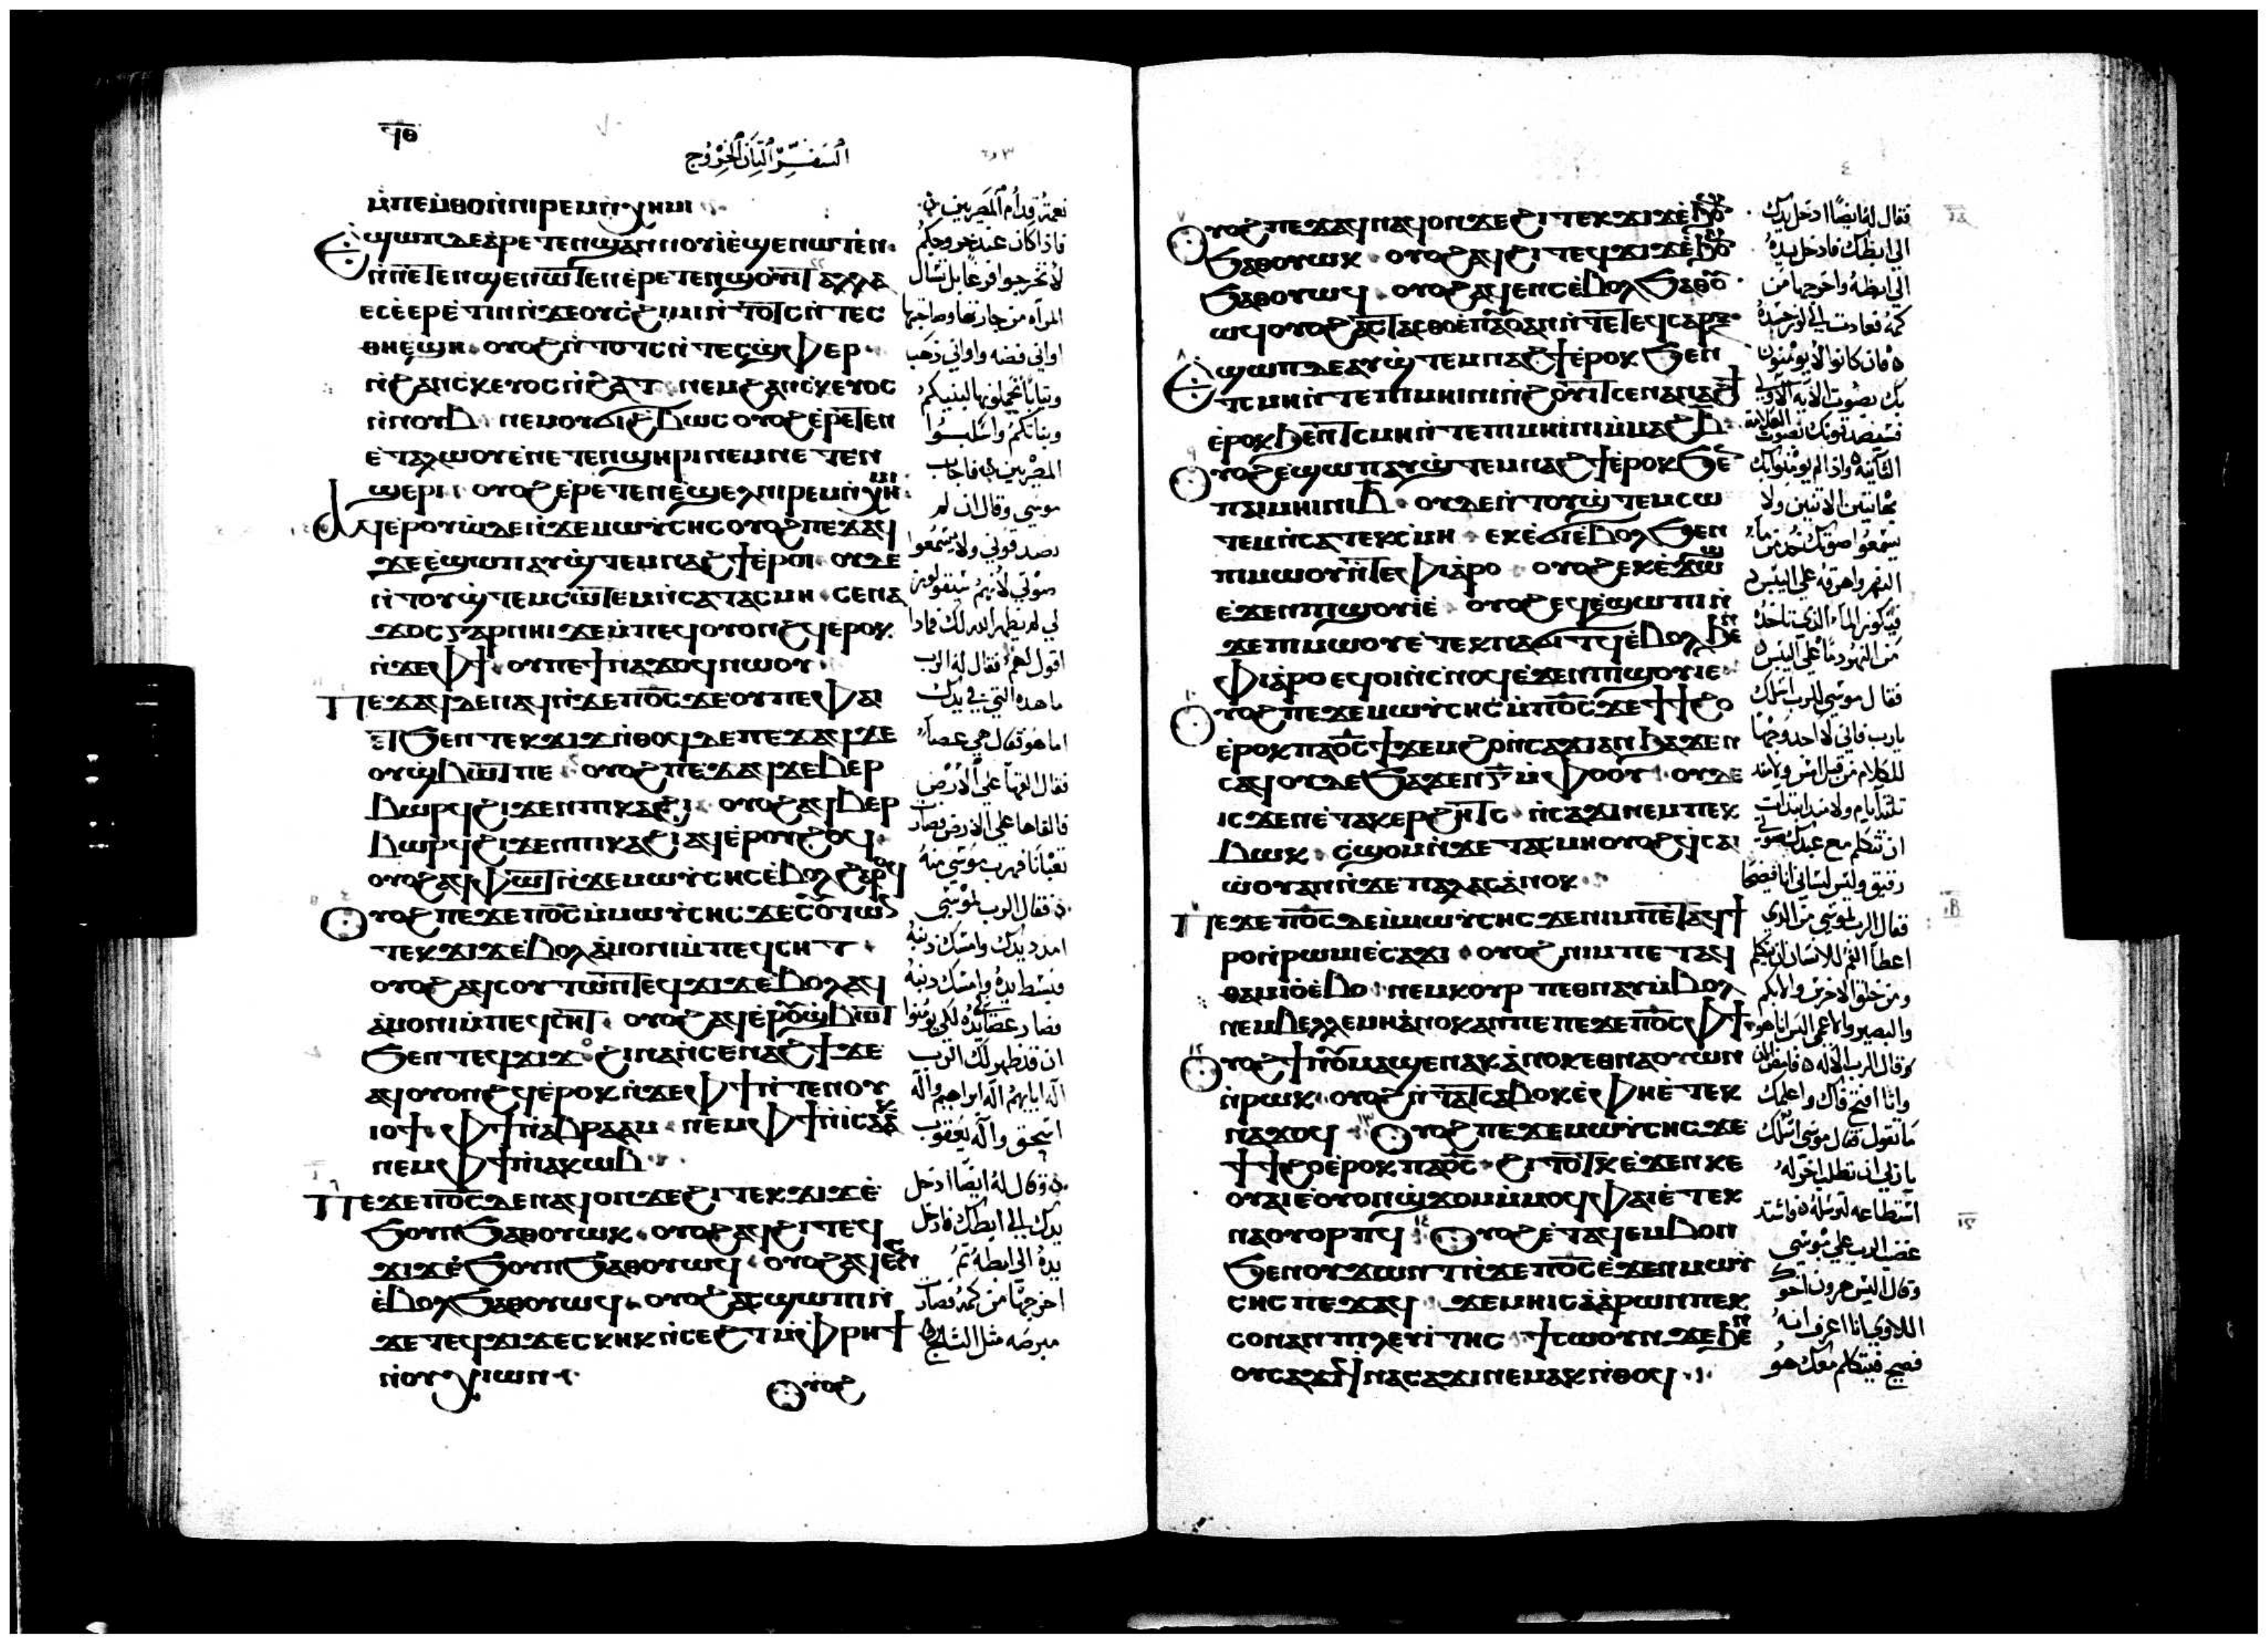 ϥⲑ
السفر الثاني الخروج
ⲙ̀ⲡⲉⲙⲑⲟ ⲛ̀ⲛⲓⲣⲉⲙⲛ̀ⲭⲏⲙⲓ
Ⲉϣⲱⲡ ⲇⲉ ⲁⲣⲉⲧⲉⲛϣⲁⲛⲛⲟⲩⲓ̀ ⲉ̀ϣⲉⲛⲱⲧⲉⲛ
ⲛ̀ⲛⲉⲧⲉⲛϣⲉⲛⲱⲧⲉⲛ ⲉⲣⲉⲧⲉⲛϣⲟⲩⲓⲧ ⲁⲗⲗⲁ
ⲉⲥⲉ̀ⲉⲣⲉ̀ⲧⲓⲛ ⲛ̀ϫⲉ ⲟⲩⲥϩⲓⲙⲓ ⲛ̀ⲧⲟⲧⲥ ⲛ̀ⲧⲉⲥ
ⲑⲏⲉϣⲏ ⲟⲩⲟϩ ⲛ̀ⲧⲟⲧⲥ ⲛ̀ⲧⲉⲥϣ̀ⲫⲉⲣ
ⲛ̀ϩⲁⲛⲥⲕⲉⲩⲟⲥ ⲛ̀ϩⲁⲧ ⲛⲉⲙ ϩⲁⲛⲥⲕⲉⲩⲟⲥ
ⲛ̀ⲛⲟⲩⲃ ⲛⲉⲙ ⲟⲩϭⲓϩⲉⲃⲱⲥ ⲟⲩⲟϩ ⲉ̀ⲣⲉⲧⲉⲛ
ⲉ̀ⲧⲁⲗⲱⲟⲩ ⲉ̀ⲛⲉⲧⲉⲛϣⲏⲣⲓ ⲛⲉⲙ ⲛⲉⲧⲉⲛ
ϣⲉⲣⲓ ⲟⲩⲟϩ ⲉ̀ⲣⲉⲧⲉⲛⲉ̀ϣⲉⲗ ⲛⲓⲣⲉⲙⲛ̀ⲭⲏⲙⲓ
Ⲁϥⲉⲣⲟⲩⲱ̀ ⲇⲉ ⲛ̀ϫⲉ ⲙⲱⲩ̀ⲥⲏⲥ ⲟⲩⲟϩ ⲡⲉϫⲁϥ
ϫⲉ ⲉ̀ϣⲱⲡ ⲁⲩϣ̀ⲧⲉⲙⲛⲁϩϯ ⲉ̀ⲣⲟⲓ ⲟⲩⲇⲉ
ⲛ̀ⲧⲟⲩϣ̀ⲧⲉⲙⲥⲱⲧⲉⲙ ⲛ̀ⲥⲁ ⲧⲁⲥⲙⲏ ⲥⲉⲛⲁ
ϫⲟⲥ ⲅⲁⲣ ⲛⲏⲓ ϫⲉ ⲙ̀ⲡⲉϥⲟⲩⲟⲛϩϥ ⲉ̀ⲣⲟⲕ
ⲛ̀ϫⲉ ⲫϯ ⲟⲩ ⲡⲉϯⲛⲁϫⲟϥ ⲛⲱⲟⲩ
Ⲡⲉϫⲁϥ ⲇⲉ ⲛⲁϥ ⲛ̀ϫⲉ ⲡⲟ̅ⲥ̅ ϫⲉ ⲟⲩ ⲡⲉ ⲫⲁⲓ
ⲉⲧϧⲉⲛ ⲧⲉⲕϫⲓϫ ⲛ̀ⲑⲟϥ ⲇⲉ ⲡⲉϫⲁϥ ϫⲉ
ⲟⲩϣ̀ⲃⲱⲧ ⲡⲉ ⲟⲩⲟϩ ⲡⲉϫⲁϥ ϫⲉ ⲃⲉⲣ
ⲃⲱⲣϥ ϩⲓϫⲉⲛ ⲡⲓⲕⲁϩⲓ ⲟⲩⲟϩ ⲁϥⲃⲉⲣ
ⲃⲱⲣϥ ϩⲓϫⲉⲛ ⲡⲓⲕⲁϩⲓ ⲁϥⲉⲣⲟⲩϩⲟϥ
ⲟⲩⲟϩ ⲁϥⲫⲱⲧ ⲛ̀ϫⲉ ⲙⲱⲩ̀ⲥⲏⲥ ⲉ̀ⲃⲟⲗ ϩⲁⲣⲟϥ
Ⲟⲩⲟϩ ⲡⲉϫⲉ ⲡⲟ̅ⲥ̅ ⲙ̀ⲙⲱⲩ̀ⲥⲏⲥ ϫⲉ ⲥⲟⲩⲧⲱⲛ
ⲧⲉⲕϫⲓϫ ⲉ̀ⲃⲟⲗ ⲁ̀ⲙⲟⲛⲓ ⲙ̀ⲡⲉϥⲥⲏⲧ
ⲟⲩⲟϩ ⲁϥⲥⲟⲩⲧⲱⲛ ⲧⲉϥϫⲓϫ ⲉ̀ⲃⲟⲗ ⲁϥ
ⲁ̀ⲙⲟⲛⲓ ⲙ̀ⲡⲉϥⲥⲏⲧ ⲟⲩⲟϩ ⲁϥⲉ̀ⲣⲟⲩϣ̀ⲃⲱⲧ
ϧⲉⲛ ⲧⲉϥϫⲓϫ ϩⲓⲛⲁ ⲛ̀ⲥⲉⲛⲁϩϯ ϫⲉ
ⲁϥⲟⲩⲟⲛϩϥ ⲉ̀ⲣⲟⲕ ⲛ̀ϫⲉ ⲫϯ ⲛ̀ⲧⲉ ⲛⲟⲩ
ⲓⲟϯ ⲫϯ ⲛ̀ⲁⲃⲣⲁⲁⲙ ⲛⲉⲙ ⲫϯ ⲛ̀ⲓⲥⲁⲁⲕ
ⲛⲉⲙ ⲫϯ ⲛ̀ⲓⲁⲕⲱⲃ
Ⲡⲉϫⲉ ⲡⲟ̅ⲥ̅ ⲇⲉ ⲛⲁϥ ⲟⲛ ϫⲉ ϩⲓ ⲧⲉⲕϫⲓϫ ⲉ̀
ϧⲟⲩⲛ ϧⲁ ⲑⲟⲩⲱⲕ ⲟⲩⲟϩ ⲁϥϩⲓ ⲧⲉϥ
ϫⲓϫ ⲉ̀ϧⲟⲩⲛ ϧⲁ ⲑⲟⲩⲱϥ ⲟⲩⲟϩ ⲁϥⲉⲛⲥ
ⲉ̀ⲃⲟⲗ ϧⲁ ⲑⲟⲩⲱϥ ⲟⲩⲟϩ ⲁⲥϣⲱⲡⲓ ⲛ̀
ϫⲉ ⲧⲉϥϫⲓϫ ⲉⲥⲕⲏⲕ ⲛ̀ⲥⲉϩⲧ ⲙ̀ⲫⲣⲏϯ
ⲛ̀ⲟⲩⲭⲓⲱⲛ
Ⲟⲩⲟϩ
نعمة قدام المصريين
فاذا كان عند خروجكم
لا تخرجوا فرغا بل تسال
المراه من جارتها وصاحبتها
اواني فضه واواني ذهب
وثيابا تجعلونها لبنيكم
وبناتكم واسلبوا
المصريين فاجاب
موسى وقال ان لم
يصدقوني ولا يسمعوا
صوتي لانهم سيقولون
لي لم يظهر الله لك فماذا
اقول لهم فقال له الرب
ما هذه التي في يدك
اما هو فقال هي عصا
فقال القها على الارض
فالقاها على الارض فصارت
ثعبانا فهرب موسى منه
فقال الرب لموسى
امدد يدك وامسك ذنبه
فبسط يده وامسك ذنبه
فصار عصا في يده لكي يومنوا
ان قد ظهر لك الرب
اله ابايهم اله ابراهيم واله
اسحق واله يعقوب
وقال له ايضا ادخل
يدك الى ابطك فادخل
يده الى ابطه ثم
اخرجها من كمه فصارت
مبرصه مثل الثلج
Ⲟⲩⲟϩ ⲡⲉϫⲁϥ ⲛⲁϥ ⲟⲛ ϫⲉ ϩⲓ ⲧⲉⲕϫⲓϫ ⲉ̀ϧⲟⲩⲛ
ϧⲁ ⲑⲟⲩⲱⲕ ⲟⲩⲟϩ ⲁϥϩⲓ ⲧⲉϥϫⲓϫ ⲉ̀ϧⲟⲩⲛ
ϧⲁ ⲑⲟⲩⲱϥ ⲟⲩⲟϩ ⲁϥⲉⲛⲥ ⲉ̀ⲃⲟⲗ ϧⲁ ⲑⲟⲩ
ⲱϥ ⲟⲩⲟϩ ⲁⲥⲧⲁⲥⲑⲟ ⲉ̀ⲡⲁⲟⲩⲁⲛ ⲛ̀ⲧⲉ ⲧⲉϥⲥⲁⲣⲝ
Ⲉϣⲱⲡ ⲇⲉ ⲁⲩϣ̀ⲧⲉⲙⲛⲁϩϯ ⲉ̀ⲣⲟⲕ ϧⲉⲛ
ⲧⲥⲙⲏ ⲛ̀ⲧⲉ ⲡⲓⲙⲏⲓⲛⲓ ⲛ̀ϩⲟⲩⲓⲧ ⲥⲉⲛⲁⲛⲁϩϯ
ⲉ̀ⲣⲟⲕ ϧⲉⲛ ⲧⲥⲙⲏ ⲛ̀ⲧⲉ ⲡⲓⲙⲏⲓⲛⲓ ⲙ̀ⲙⲁϩⲃ
Ⲟⲩⲟϩ ⲉ̀ϣⲱⲡ ⲁⲩϣ̀ⲧⲉⲙⲛⲁϩϯ ⲉ̀ⲣⲟⲕ ϧⲉⲛ
ⲡⲁⲓⲙⲏⲓⲛⲓ ⲃ ⲟⲩⲇⲉ ⲛ̀ⲧⲟⲩϣ̀ⲧⲉⲙⲥⲱ
ⲧⲉⲙ ⲛ̀ⲥⲁ ⲧⲉⲕⲥⲙⲏ ⲉⲕⲉ̀ϭⲓ ⲉ̀ⲃⲟⲗ ϧⲉⲛ
ⲡⲓⲙⲱⲟⲩ ⲛ̀ⲧⲉ ⲫⲓⲁⲣⲟ ⲟⲩⲟϩ ⲉⲕⲉ̀ϫⲱϣ
ⲉ̀ϫⲉⲛ ⲡⲓϣⲟⲩⲓⲉ̀ ⲟⲩⲟϩ ⲉϥⲉ̀ϣⲱⲡⲓ ⲛ̀
ϫⲉ ⲡⲓⲙⲱⲟⲩ ⲉ̀ⲧⲉⲕⲛⲁϭⲓⲧϥ ⲉ̀ⲃⲟⲗ ϧⲉⲛ
ⲫⲓⲁⲣⲟ ⲉϥⲟⲓ ⲛ̀ⲥⲛⲟϥ ⲉ̀ϫⲉⲛ ⲡⲓϣⲟⲩⲓⲉ
Ⲟⲩⲟϩ ⲡⲉϫⲉ ⲙⲱⲩ̀ⲥⲏⲥ ⲙ̀ⲡⲟ̅ⲥ̅ ϫⲉ ϯϯϩⲟ
ⲉ̀ⲣⲟⲕ ⲡⲁⲟ̅ⲥ̅ ϯϫⲉⲙϩⲟ ⲛ̀ⲥⲁϫⲓ ⲁⲛ ϧⲁϫⲉⲛ
ⲥⲁϥ ⲟⲩⲇⲉ ϧⲁϫⲉⲛ ⲅ̅ ⲙ̀ⲫⲟⲟⲩ ⲟⲩⲇⲉ
ⲓⲥϫⲉⲛ ⲉ̀ⲧⲁⲕⲉⲣϩⲏⲧⲥ ⲛ̀ⲥⲁϫⲓ ⲛⲉⲙ ⲡⲉⲕ
ⲃⲱⲕ ⲥ̀ϣⲟⲙ ⲛ̀ϫⲉ ⲧⲁⲥⲙⲏ ⲟⲩⲟϩ ϥ̀ⲥⲁⲓ
ⲱ̀ⲟⲩ ⲁⲛ ⲛ̀ϫⲉ ⲡⲁⲗⲁⲥ ⲁ̀ⲛⲟⲕ
Ⲡⲉϫⲉ ⲡⲟ̅ⲥ̅ ⲇⲉ ⲙ̀ⲙⲱⲩ̀ⲥⲏⲥ ϫⲉ ⲛⲓⲙ ⲡⲉⲧⲁϥϯ
ⲣⲟ ⲛ̀ⲣⲱⲙⲓ ⲉ̀ⲥⲁϫⲓ ⲟⲩⲟϩ ⲛⲓⲙ ⲡⲉⲧⲁϥ
ⲑⲁⲙⲓⲟ̀ ⲉ̀ⲃⲟ ⲛⲉⲙ ⲕⲟⲩⲣ ⲡⲉⲑⲛⲁⲩ ⲙ̀ⲃⲟⲗ
ⲛⲉⲙ ⲃⲉⲗⲗⲉ ⲙⲏ ⲁ̀ⲛⲟⲕ ⲁⲛ ⲡⲉ ⲡⲉϫⲉ ⲡⲟ̅ⲥ̅ ⲫϯ
Ⲟⲩⲟϩ ϯⲛⲟⲩ ⲙⲁϣⲉⲛⲁⲕ ⲁ̀ⲛⲟⲕ ⲉⲑⲛⲁⲟⲩⲱⲛ
ⲛ̀ⲣⲱⲕ ⲟⲩⲟϩ ⲛ̀ⲧⲁⲧⲥⲁⲃⲟⲕ ⲉ̀ⲫⲏ ⲉ̀ⲧⲉⲕ
ⲛⲁϫⲟϥ Ⲟⲩⲟϩ ⲡⲉϫⲉ ⲙⲱⲩ̀ⲥⲏⲥ ϫⲉ
ϯϯϩⲟ ⲉ̀ⲣⲟⲕ ⲡⲁⲟ̅ⲥ̅ ϩⲓⲧⲟⲧⲕ ⲉ̀ϫⲉⲛ ⲕⲉ
ⲟⲩⲁⲓ ⲉ̀ⲟⲩⲟⲛϣ̀ϫⲟⲙ ⲙ̀ⲙⲟϥ ⲫⲁⲓ ⲉ̀ⲧⲉⲕ
ⲛⲁⲟⲩⲟⲣⲡϥ Ⲟⲩⲟϩ ⲉ̀ⲧⲁϥⲉⲙⲃⲟⲛ
ϧⲉⲛ ⲟⲩϫⲱⲛⲧ ⲛ̀ϫⲉ ⲡⲟ̅ⲥ̅ ⲉ̀ϫⲉⲛ ⲙⲱⲩ̀
ⲥⲏⲥ ⲡⲉϫⲁϥ ϫⲉ ⲙⲏ ⲓⲥ ⲁ̀ⲁⲣⲱⲛ ⲡⲉⲕ
ⲥⲟⲛ ⲁⲛ ⲡⲓⲗⲉⲩⲓ̀ⲧⲏⲥ ϯⲥⲱⲟⲩⲛ ϫⲉ ϧⲉⲛ
ⲟⲩⲥⲁϫⲓ ϥⲛⲁⲥⲁϫⲓ ⲛⲉⲙⲁⲕ ⲛ̀ⲑⲟϥ
فقال له ايضا ادخل يدك
الى ابطك فادخل يده
الى ابطه واخرجها من
كمه فعادت الى لون جسده
فان كانوا لا يومنون
بك بصوت الايه الاولى
فسيصدقونك بصوت العلامه
الثانيه واذا لم يومنوا بك
بهاتين الاثنين ولا
يسمعوا صوتك خذ من ما
النهر واهرقه على اليبس
فيكون الماء الذي تاخذه
من النهر دما على اليبس
فقال موسى للرب اسلك
يارب فاني لا اجد وجها
للكلام من قبل امس ولا منذ
ثلثة ايام ولا منذ ابتدات
ان تتكلم مع عبدك صوتي
دقيق وليس لساني انا فصيحا
فقال الرب لموسى من الذي
اعطا الفم للانسان ان يتكلم
ومن خلق الاخرس والابكم
والبصير والاعمى اليس انا هو
وقال الرب الاله فامض الان
وانا افتح فاك واعلمك
ما تقول فقال موسى اسلك
يا ربي ان تطلب اخر له
استطاعه لترسله فاشتد
غضب الرب على موسى
وقال اليس هرون اخوك
اللاوي انا اعرف انه
فصيح فيتكلم معك هو